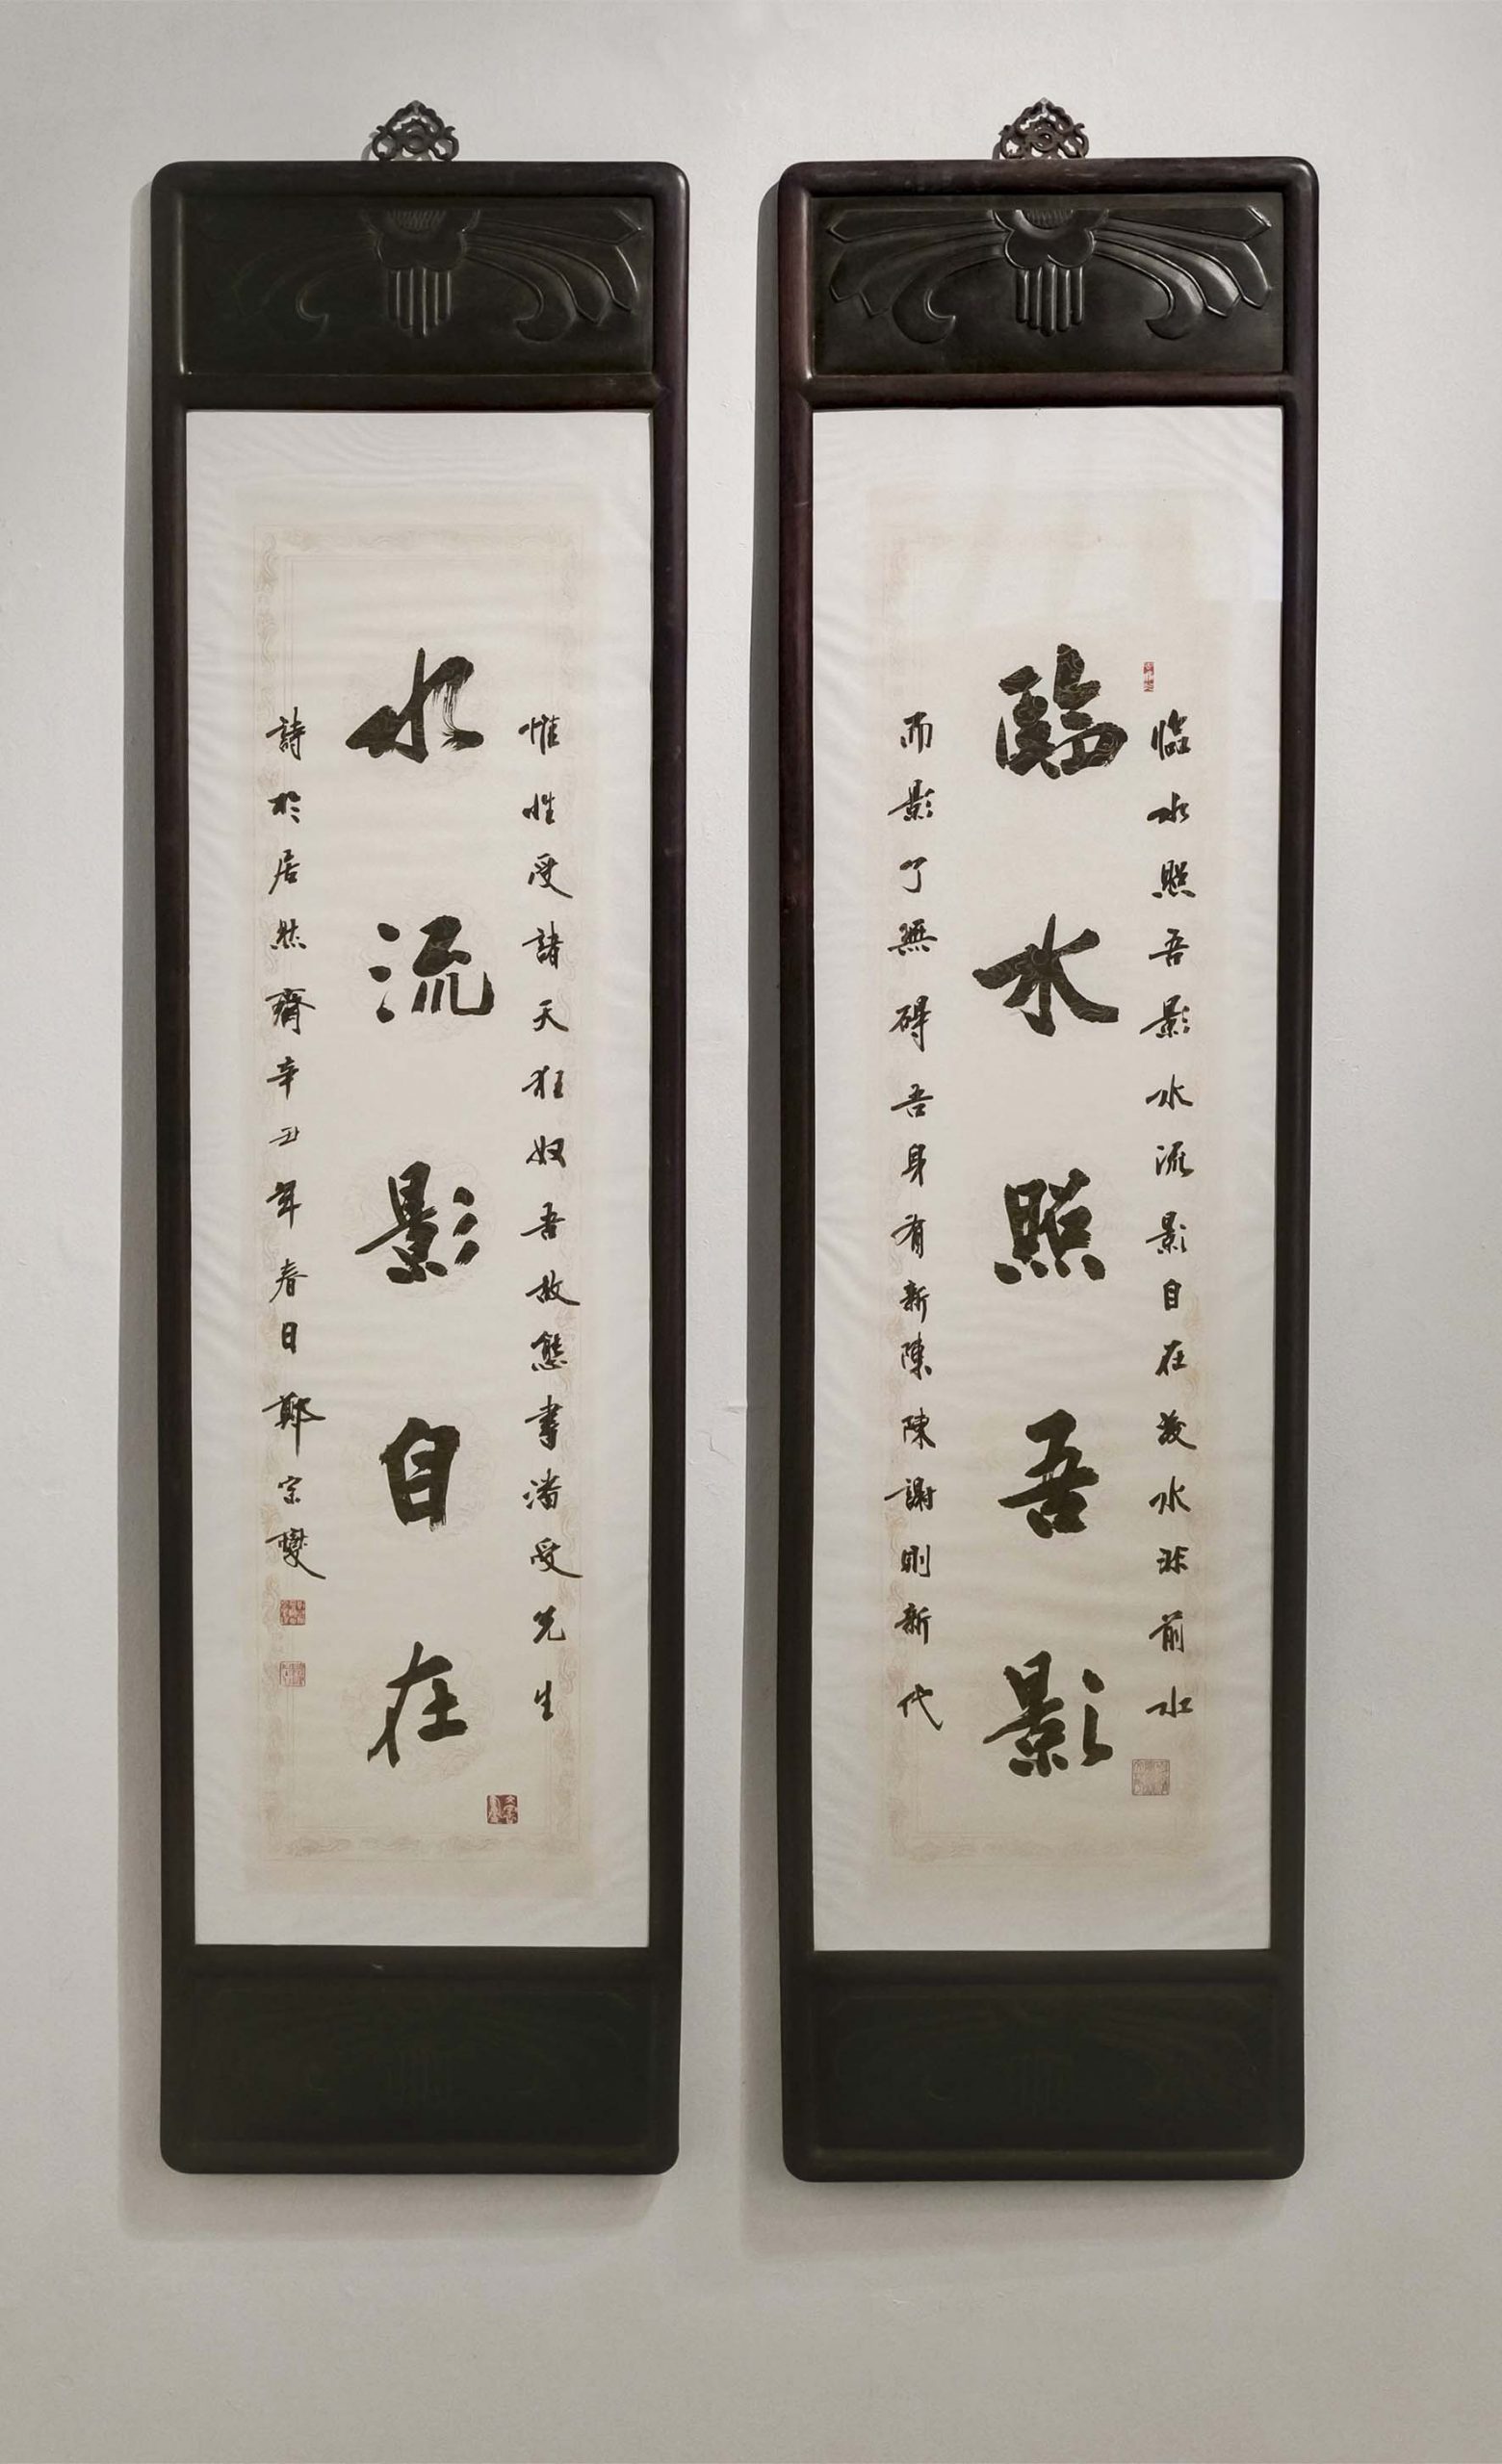 臨水照吾影水流影自在後水非前水
臨水照吾影
而影了無碍吾身有新陳陳謝則新代
惟性受諸天狂奴吾故態書潘受先生
水流影自在
詩於居然齋辛丑年春日鄭宗